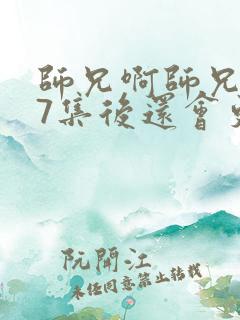 師兄啊師兄
7集後還會
阮開江
未經同意禁止轉載